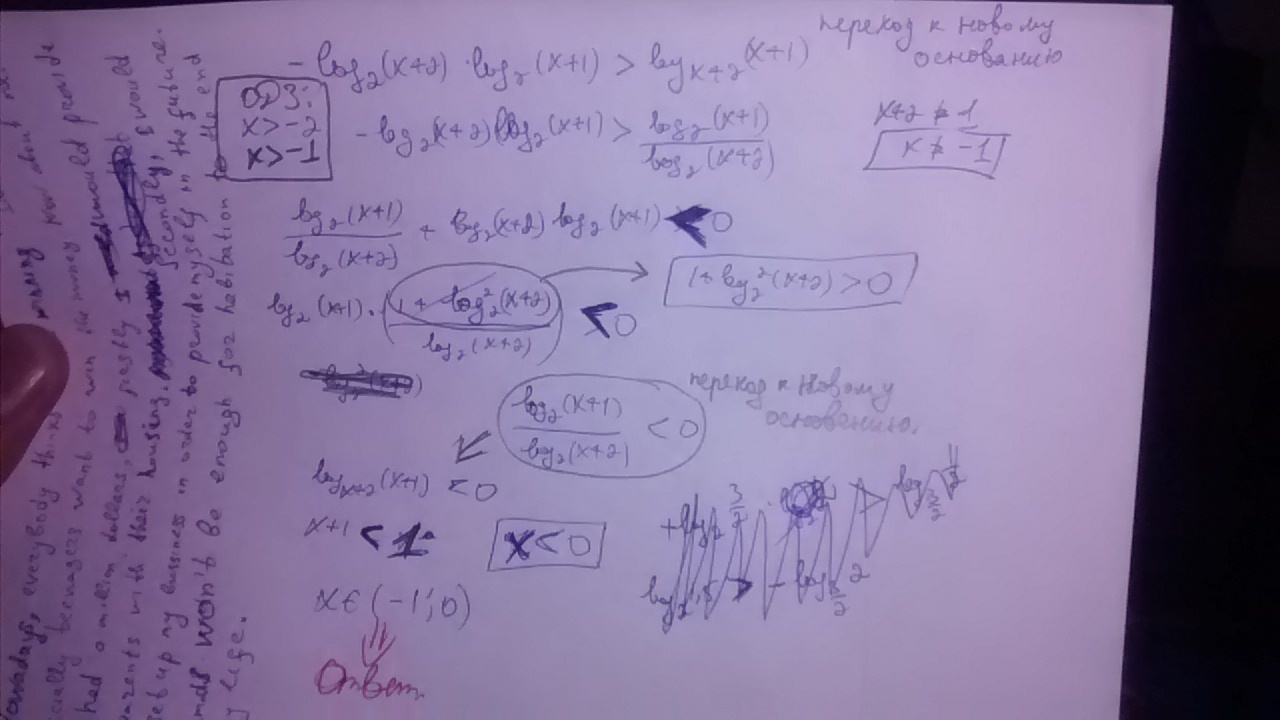 переход к новому
основанию
- log₂(x+2) · log₂(x+1) > log_{x+2}(x+1)
ОДЗ:
x > -2
x > -1
- log₂(x+2) log₂(x+1) > log₂(x+1) / log₂(x+2)
x+2 ≠ 1
x ≠ -1
log₂(x+1) / log₂(x+2) + log₂(x+2) log₂(x+1) < 0
log₂(x+1) · (1 + log₂²(x+2) / log₂(x+2)) < 0
1 + log₂²(x+2) > 0
log₂(x+1) / log₂(x+2) < 0
переход к новому
основению.
log_{x+2}(x+1) < 0
x+1 < 1
x < 0
x ∈ (-1; 0)
Ответ.
everybody thinks
teenagers want to win the money
had a million dollars, I would provide
parents with their housing. Secondly, I would
set up my bussiness in order to provide myself in the future.
won't be enough for habibation to the end
life.